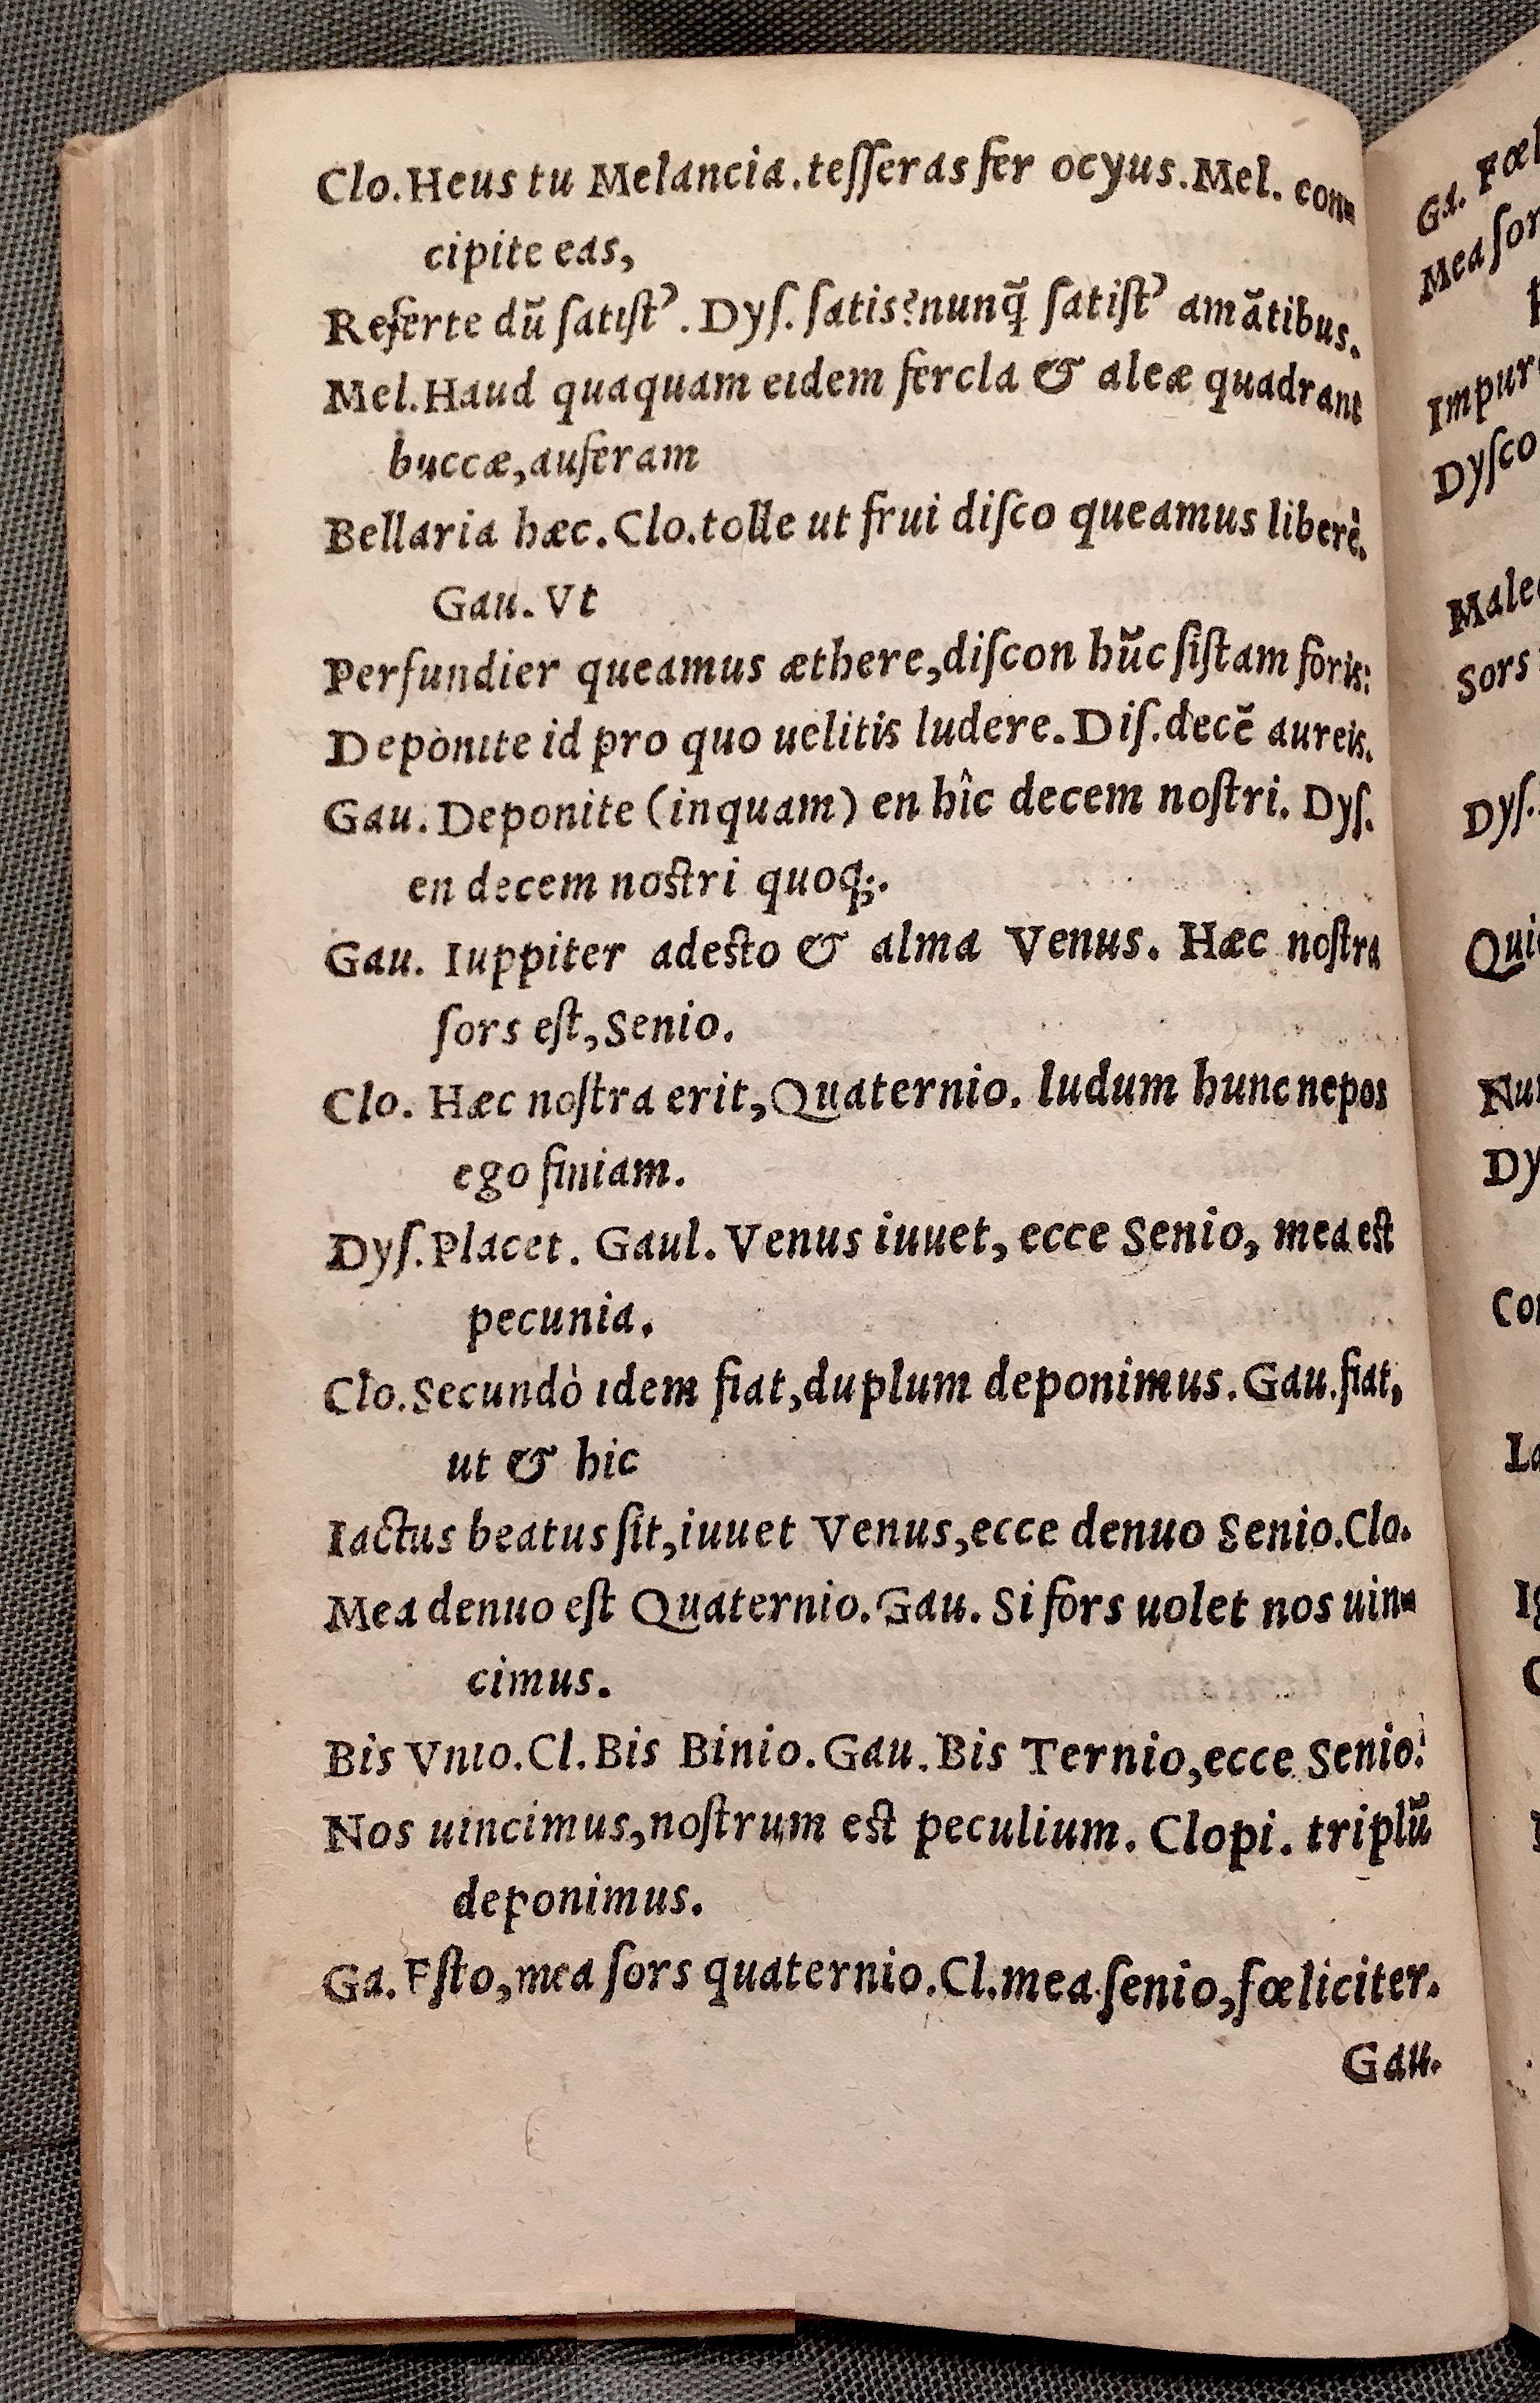 Clo. Heus tu Melancia. teſſeras fer ocyus. Mel. con-
cipite eas,
Referte dũ ſatiſt'. Dyſ. ſatis? nunq̃ ſatiſt' amãtibus.
Mel. Haud quaquam eidem fercla & aleæ quadrant
buccæ, auferam
Bellaria hæc. Clo. tolle ut frui diſco queamus liberè.
Gau. Vt
Perfundier queamus æthere, diſcon hũc ſiſtam foris:
Deponite id pro quo uelitis ludere. Diſ. decẽ aureis.
Gau. Deponite (inquam) en hîc decem noſtri. Dyſ.
en decem noſtri quoq;.
Gau. Iuppiter adeſto & alma Venus. Hæc noſtra
ſors eſt, Senio.
Clo. Hæc noſtra erit, Quaternio. ludum hunc nepos
ego finiam.
Dyſ. Placet. Gaul. Venus iuuet, ecce Senio, mea eſt
pecunia.
Clo. Secundò idem fiat, duplum deponimus. Gau. fiat,
ut & hic
Iactus beatus ſit, iuuet Venus, ecce denuo Senio. Clo.
Mea denuo eſt Quaternio. Gau. Si fors uolet nos uin-
cimus.
Bis Vnio. Cl. Bis Binio. Gau. Bis Ternio, ecce Senio.
Nos uincimus, noſtrum eſt peculium. Clopi. triplũ
deponimus.
Ga. Eſto, mea ſors quaternio. Cl. mea ſenio, fœliciter.
Gau.
Ga. Fœl
Mea ſor
Impur
Dyſco
Male
Sors
Dyſ.
Qui
Nu
Dy
Co
La